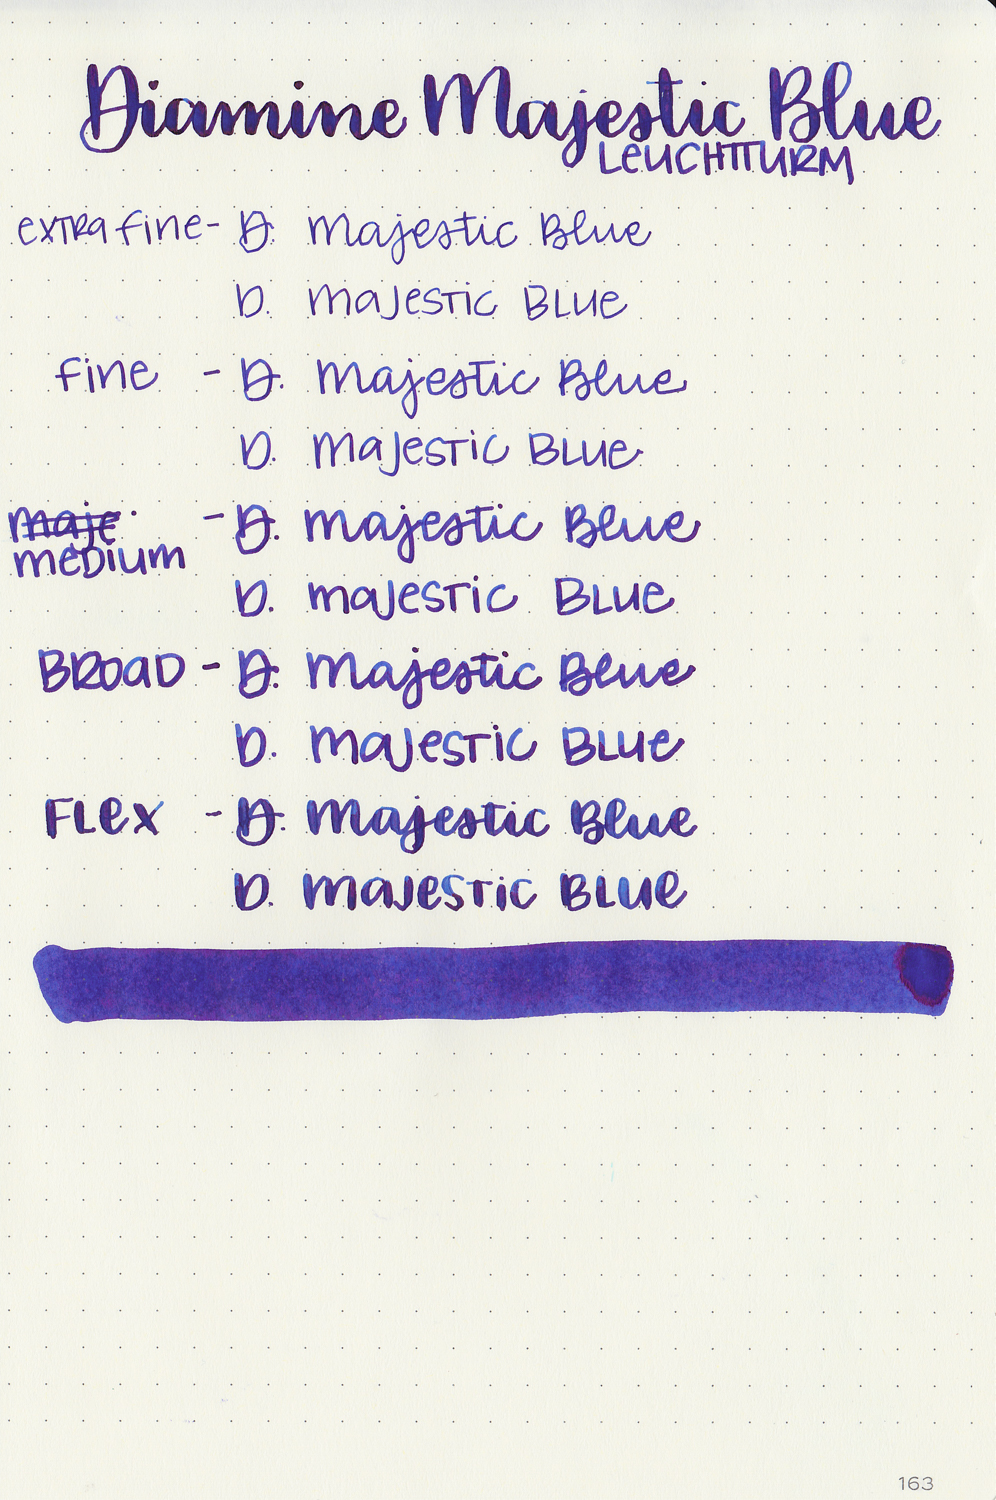 Diamine Majestic Blue
LEUCHTTURM
extra fine - D. Majestic Blue
D. Majestic Blue
fine - D. Majestic Blue
D. Majestic Blue
maje - D. Majestic Blue
medium
D. Majestic Blue
BROAD - D. Majestic Blue
D. Majestic Blue
FLex - D. Majestic Blue
D. Majestic Blue
163